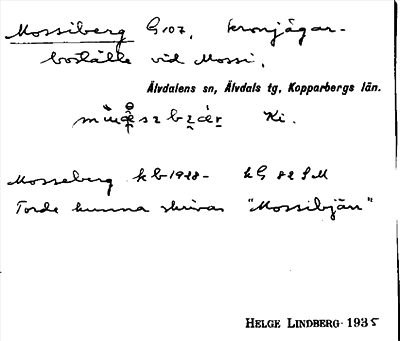 Mossiberg G 107, kronjägar-
boställe vid Mossi,
Älvdalens sn, Älvdals tg, Kopparbergs län.
Ki.
Mosseberg k b 1928- k G 82 SM
Torde kunna skrivas "Mossibjärr"
HELGE LINDBERG 1935